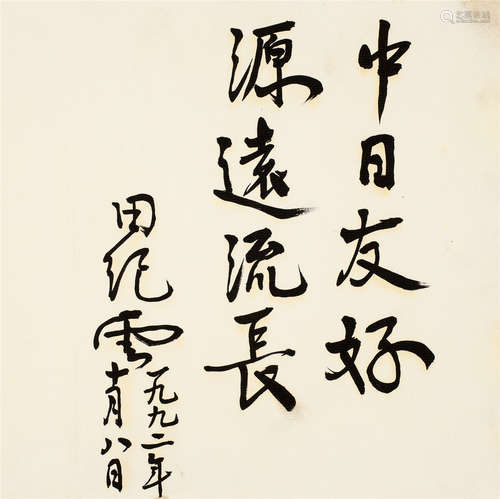 中日友好
源遠流長
田纪雲
一九九二年
十月八日